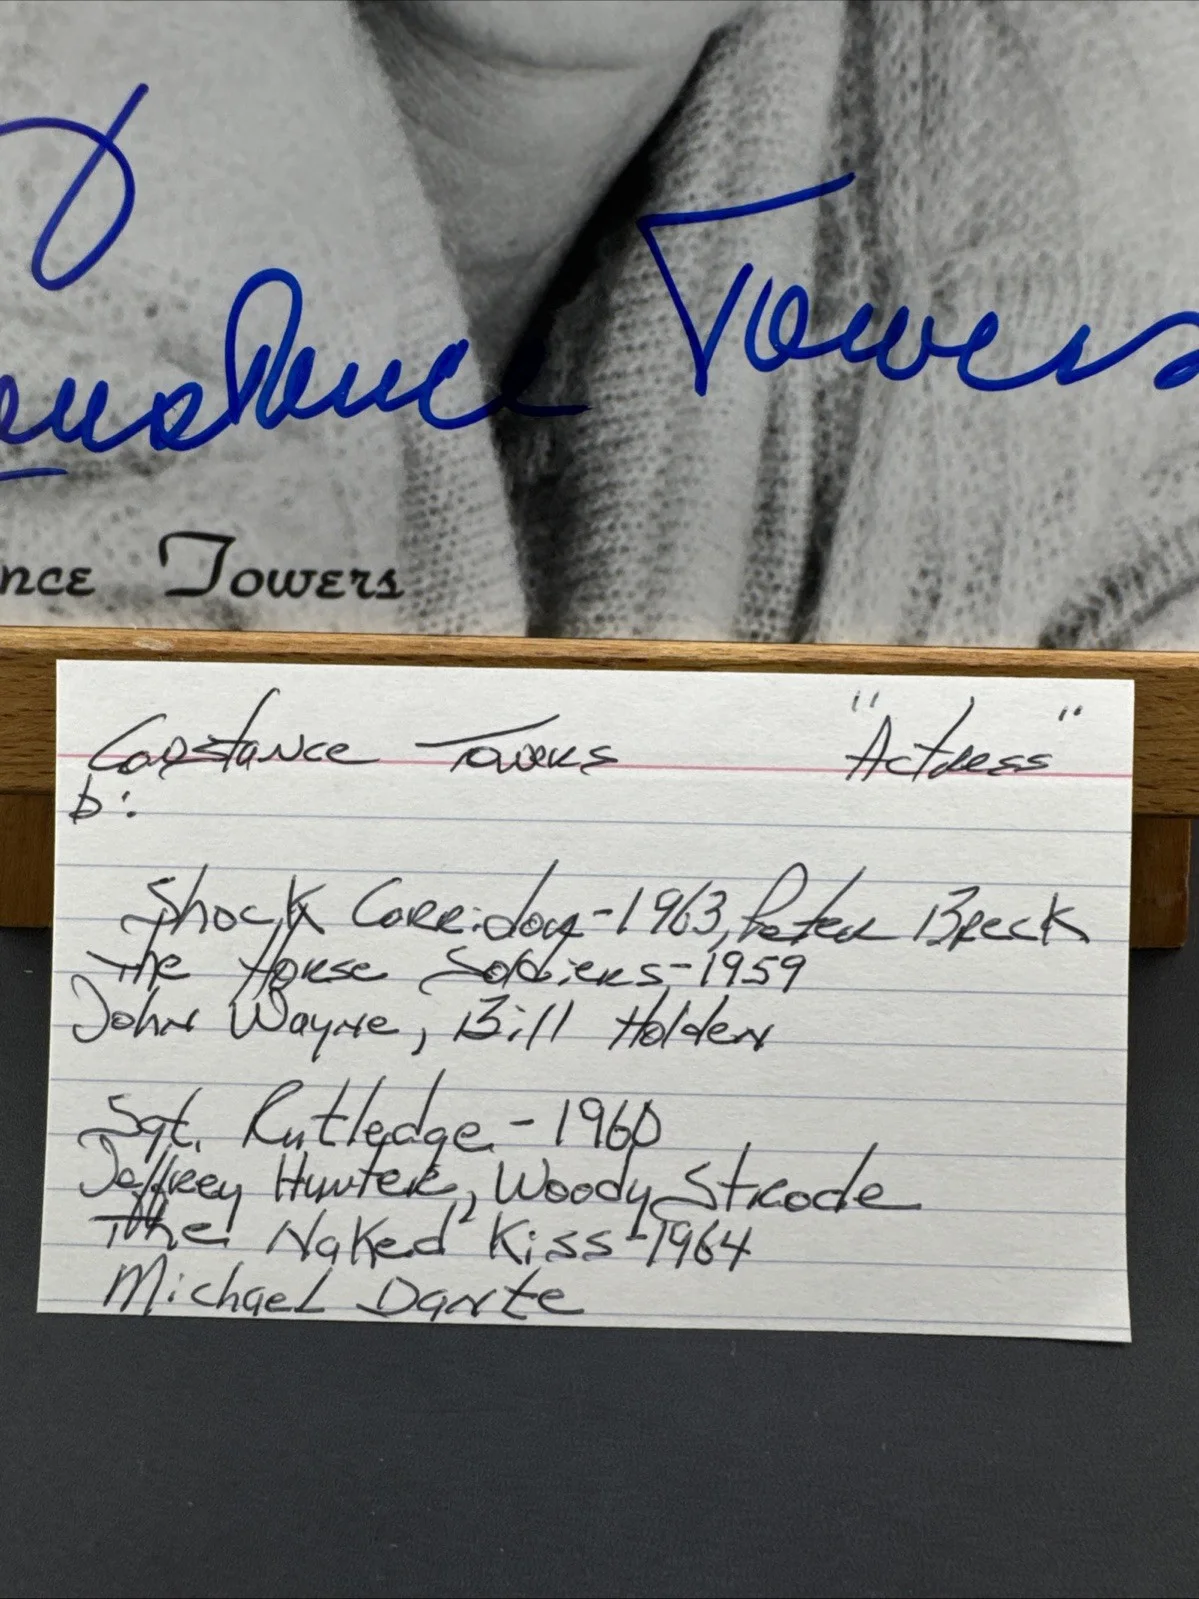 Towers
nce Towers
Constance Towers "Actress"
b:
Shock Corridor-1963, Peter Breck
The Horse Soldiers-1959
John Wayne, Bill Holden
Sgt. Rutledge-1960
Jeffrey Hunter, Woody Strode
The Naked Kiss-1964
Michael Dante